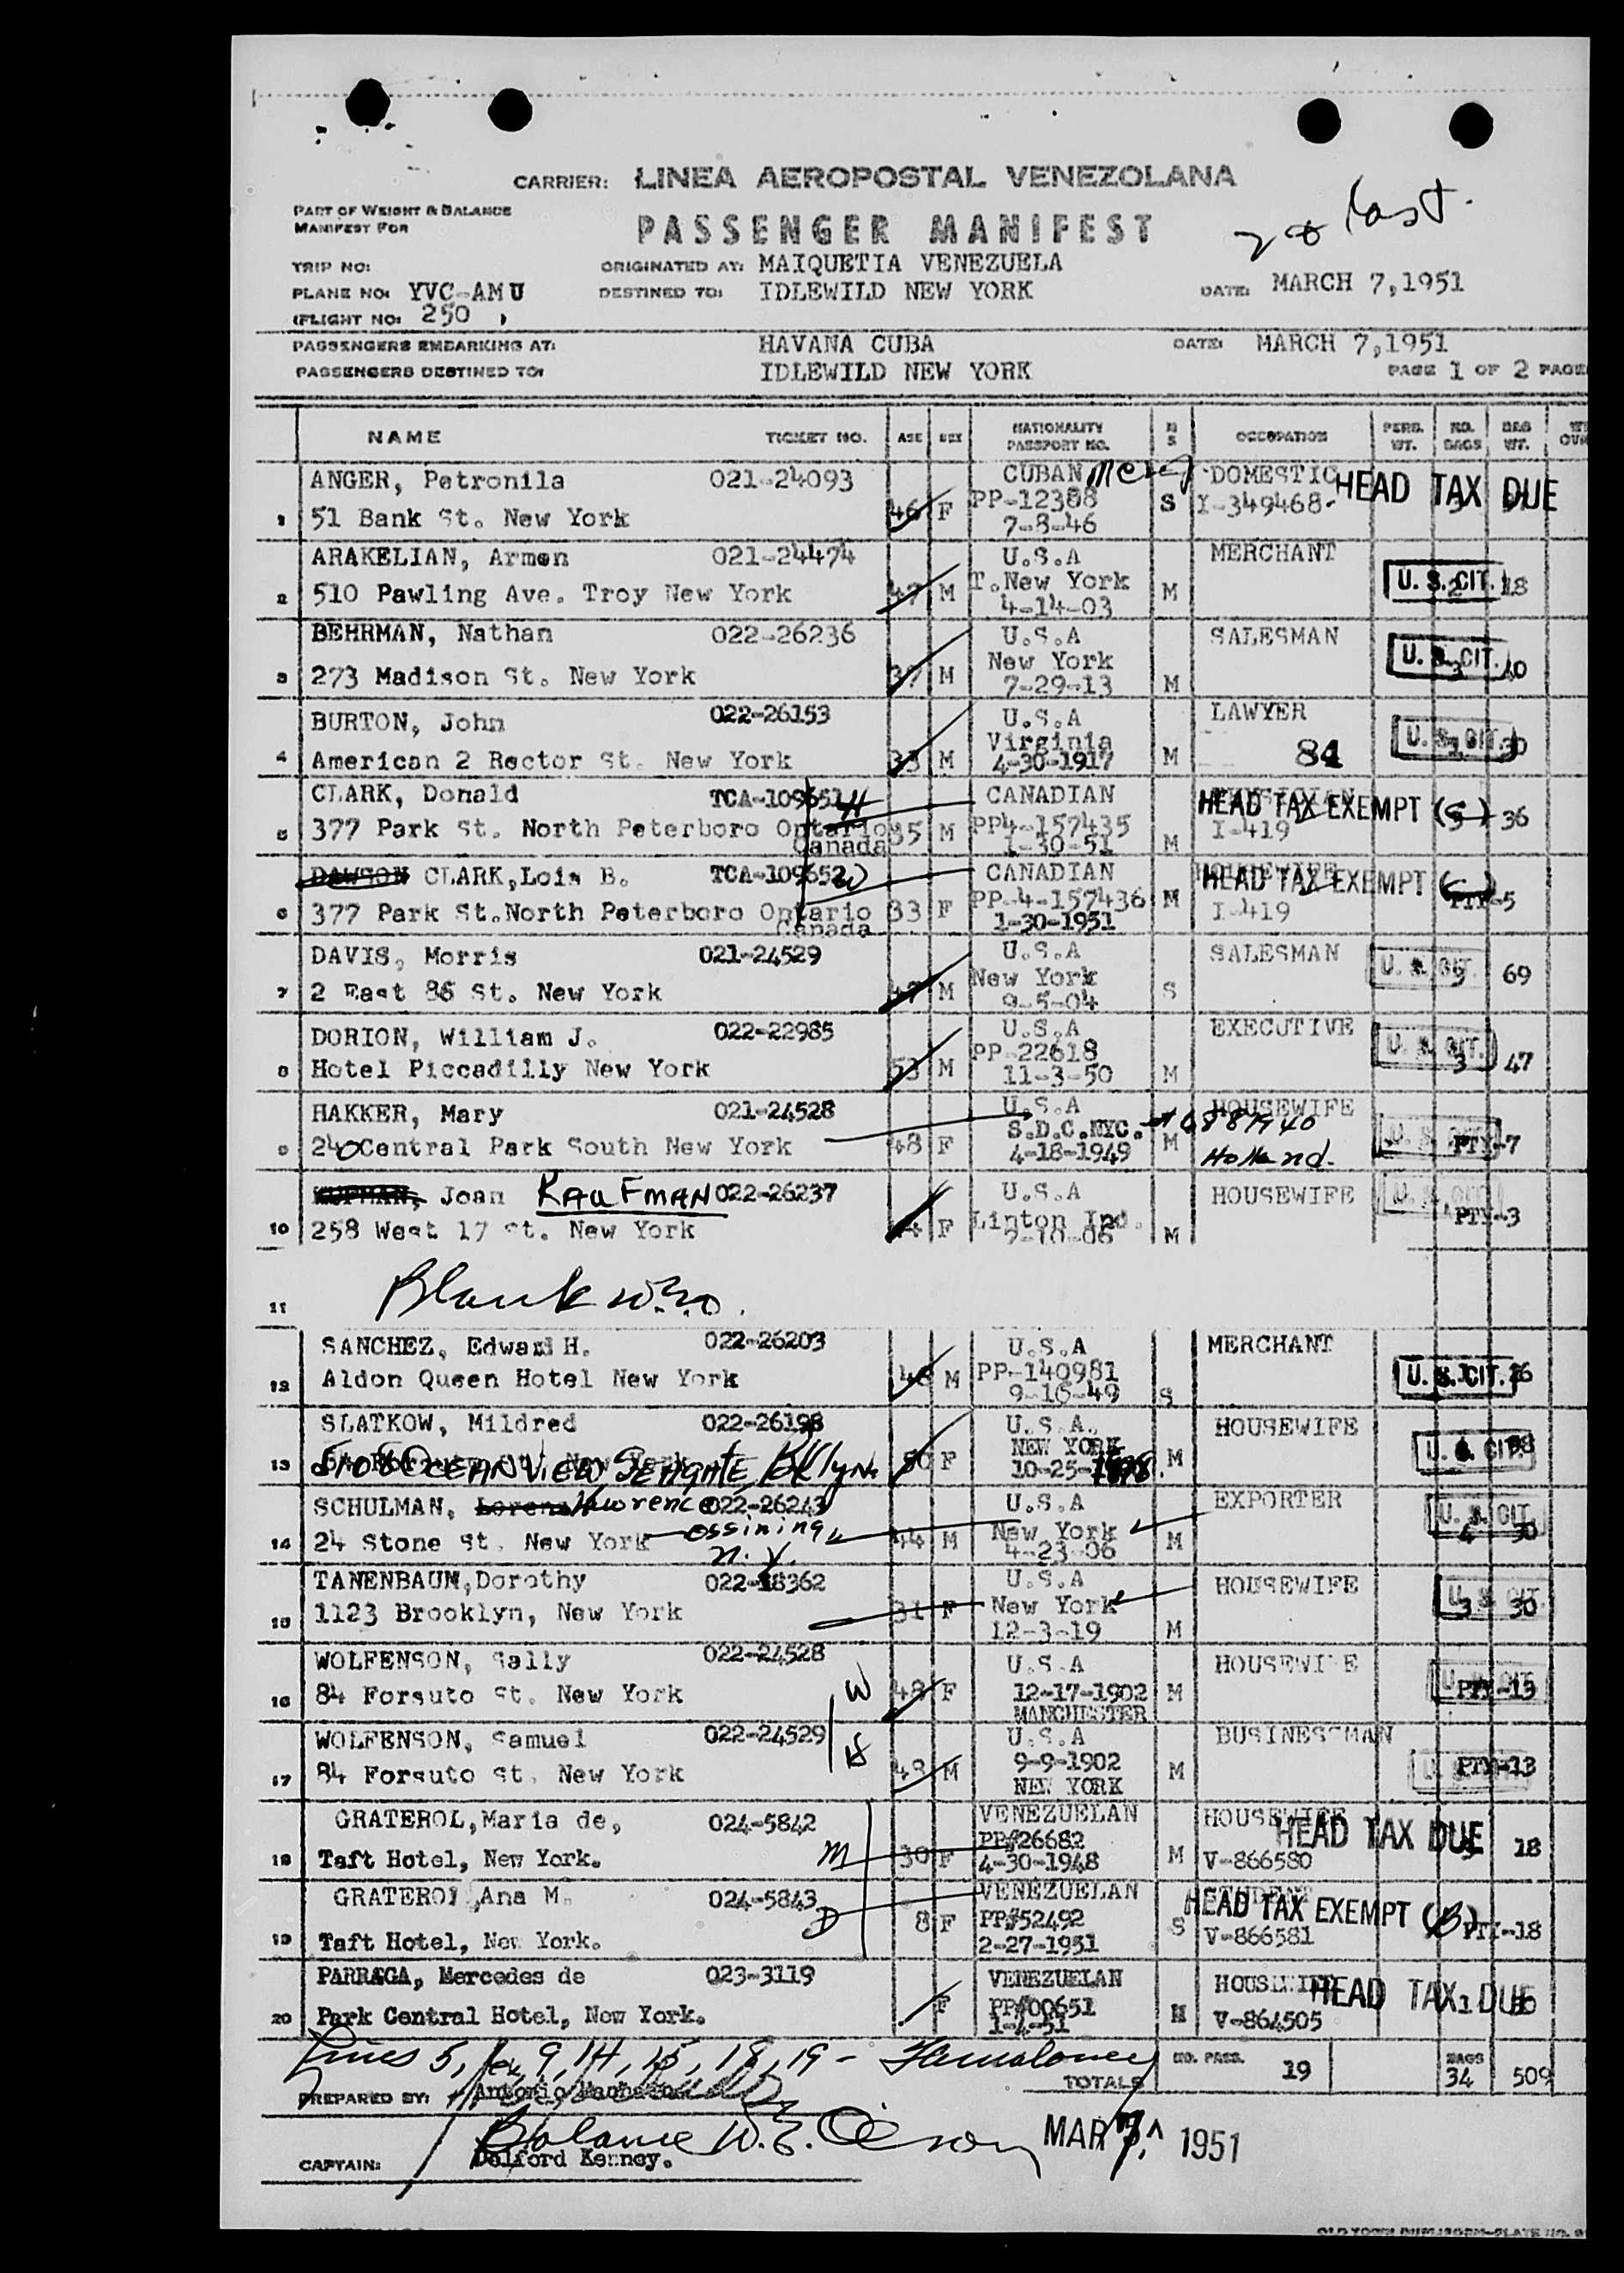 CARRIER: LINEA AEROPOSTAL VENEZOLANA
PART OF WEIGHT & BALANCE
MANIFEST FOR
PASSENGER MANIFEST
last.
TRIP NO:
ORIGINATED AT: MAIQUETIA VENEZUELA
PLANE NO: YVC-AMU
DESTINED TO: IDLEWILD NEW YORK
DATE: MARCH 7,1951
(FLIGHT NO: 250 )
PASSENGERS EMBARKING AT: HAVANA CUBA DATE: MARCH 7,1951
PASSENGERS DESTINED TO: IDLEWILD NEW YORK PAGE 1 OF 2 PAGE
NAME TICKET NO. AGE SEX NATIONALITY PASSPORT NO. M S OCCUPATION PERS. WT. NO. BAGS BAG WT.
ANGER, Petronila 021-24093 CUBAN DOMESTIC HEAD TAX DUE
PP-12388 S I-349468
1 51 Bank St. New York 46 F 7-8-46
ARAKELIAN, Armen 021-24474 U.S.A MERCHANT
2 510 Pawling Ave. Troy New York 47 M T.New York M U. S. CIT. 2 18
4-14-03
BEHRMAN, Nathan 022-26236 U.S.A SALESMAN
New York U. S. CIT. 3 40
3 273 Madison St. New York 37 M 7-29-13 M
BURTON, John 022-26153 U.S.A LAWYER
Virginia 84 U. S. CIT. 30
4 American 2 Rector St. New York 33 M 4-30-1917 M
CLARK, Donald TCA-109651 H CANADIAN HEAD TAX EXEMPT 36
5 377 Park St. North Peterboro Ontario 35 M PP4-157435 M I-419
Canada 1-30-51
DAWSON CLARK,Lois B. TCA-109652 W CANADIAN HOUSEWIFE HEAD TAX EXEMPT
6 377 Park St.North Peterboro Ontario 33 F PP-4-157436 M I-419 PTY-5
Canada 1-30-1951
DAVIS, Morris 021-24529 U.S.A SALESMAN U. S. CIT.
7 2 East 86 St. New York 47 M New York S 69
9-5-04
DORION, William J. 022-22985 U.S.A EXECUTIVE
PP-22618 U. S. CIT.
8 Hotel Piccadilly New York 53 M 11-3-50 M 3 47
HAKKER, Mary 021-24528 U.S.A HOUSEWIFE
S.D.C.NYC.
9 240 Central Park South New York 48 F 4-18-1949 M Holland. PTY-7
KUFMAN, Joan KAUFMAN 022-26237 U.S.A HOUSEWIFE
10 258 West 17 St. New York F Linton Ind. M PTY-3
2-10-06
11 Blank
SANCHEZ, Edward H. 022-26203 U.S.A MERCHANT
12 Aldon Queen Hotel New York 48 M PP-140981 S U. S. CIT.
9-16-49
SLATKOW, Mildred 022-26198 U.S.A. HOUSEWIFE
NEW YORK
13 OCEANVIEW SEAGATE, Bklyn. 50 F 10-25-1898. M U. S. CIT.
SCHULMAN, Lawrence 022-26243 U.S.A EXPORTER
14 24 Stone St. New York ossining 44 M New York M U. S. CIT. 4 30
N. Y. 4-23-06
TANENBAUM,Dorothy 022-18362 U.S.A HOUSEWIFE
15 1123 Brooklyn, New York 31 F New York M 3 30
12-3-19
WOLFENSON, Sally 022-24528 U.S.A HOUSEWIFE
16 84 Forsuto St. New York W 48 F 12-17-1902 M PTY-13
MANCHESTER
WOLFENSON, Samuel 022-24529 U.S.A BUSINESSMAN
H 9-9-1902 PTY-13
17 84 Forsuto St. New York 48 M NEW YORK M
GRATEROL,Maria de, 024-5842 VENEZUELAN HOUSEWIFE HEAD TAX DUE
PP#26682
18 Taft Hotel, New York. M 30 F 4-30-1948 M V-866580 18
GRATEROL,Ana M. 024-5843 VENEZUELAN STUDENT HEAD TAX EXEMPT
D 8 F PP#52492 S V-866581 PTY-18
19 Taft Hotel, New York. 2-27-1951
PARRAGA, Mercedes de 023-3119 VENEZUELAN HOUSEWIFE HEAD TAX DUE
PP#00651
20 Park Central Hotel, New York. F 1-4-51 M V-864505
Lines 5, 6, 9, 14, 15, 18, 19 -
NO. PASS. 19 BAGS 34 509
TOTALS
PREPARED BY: Antonio
Balance W. E. Olson MAR 7 1951
CAPTAIN: Delford Kenney.